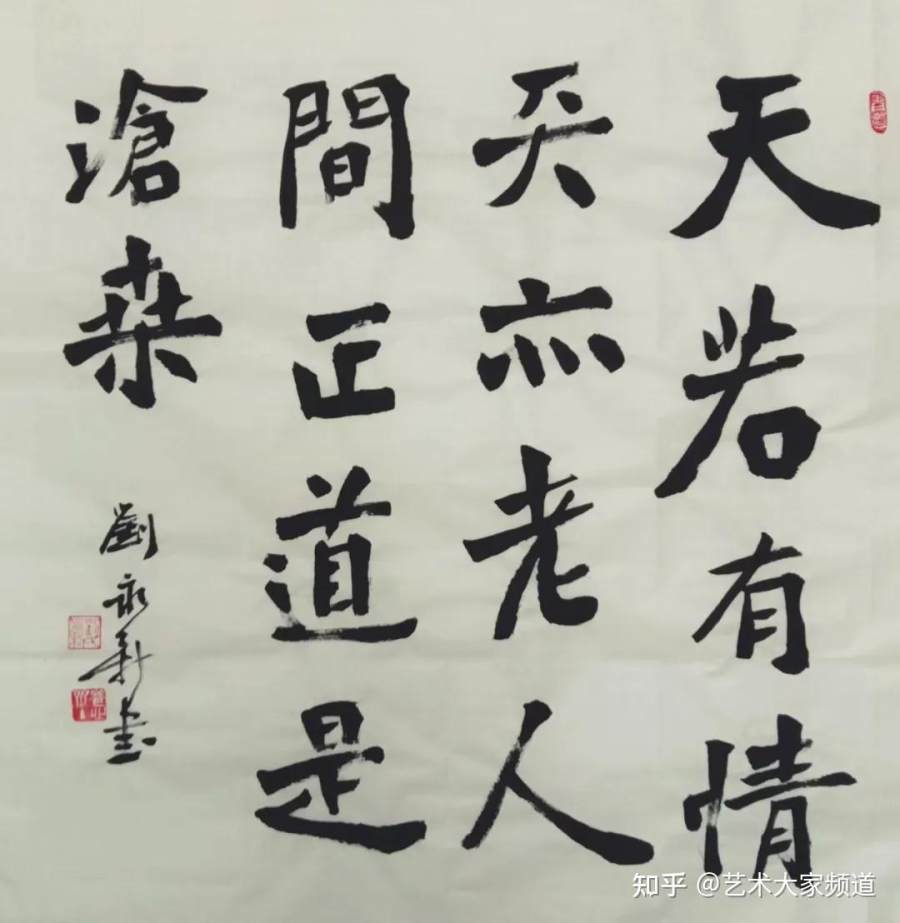 天若有情
天亦老人
間正道是
滄桒
劉永新書
知乎 @艺术大家频道